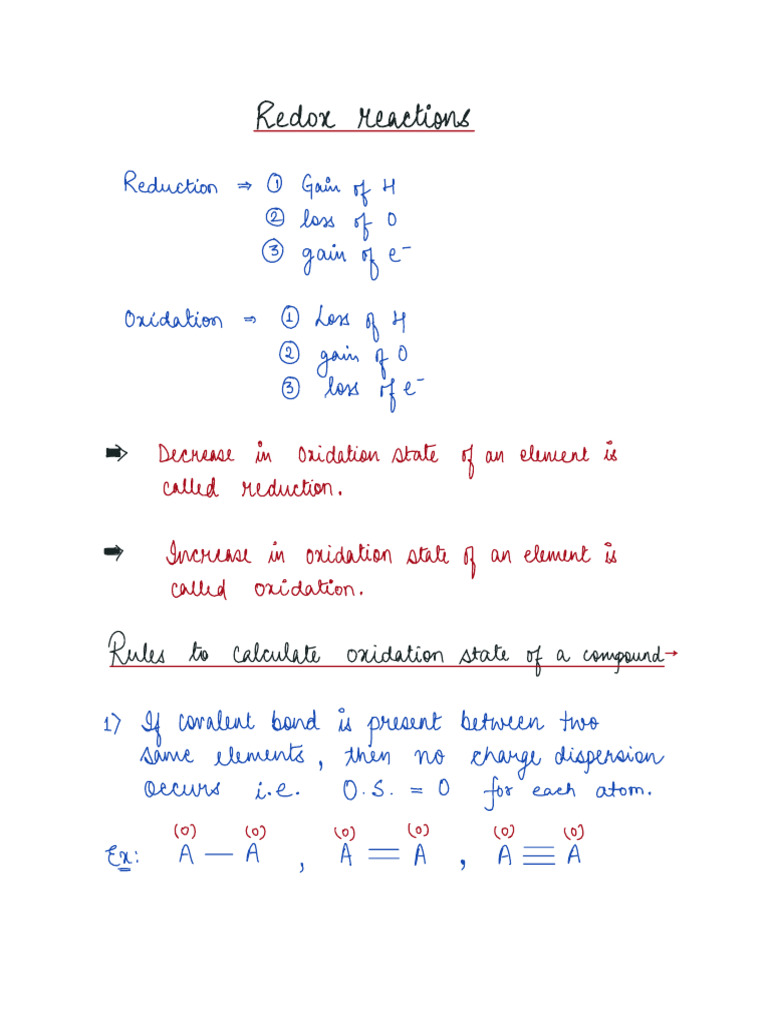 Redox reactions
Reduction ⇒ ① Gain of H
② loss of O
③ gain of e⁻
Oxidation ⇒ ① Loss of H
② gain of O
③ loss of e⁻
➡ Decrease in oxidation state of an element is
called reduction.
➡ Increase in oxidation state of an element is
called oxidation.
Rules to calculate oxidation state of a compound→
1) If covalent bond is present between two
same elements, then no charge dispersion
occurs i.e. O.S. = 0 for each atom.
(0) (0) (0) (0) (0) (0)
Ex: A — A , A = A , A ≡ A